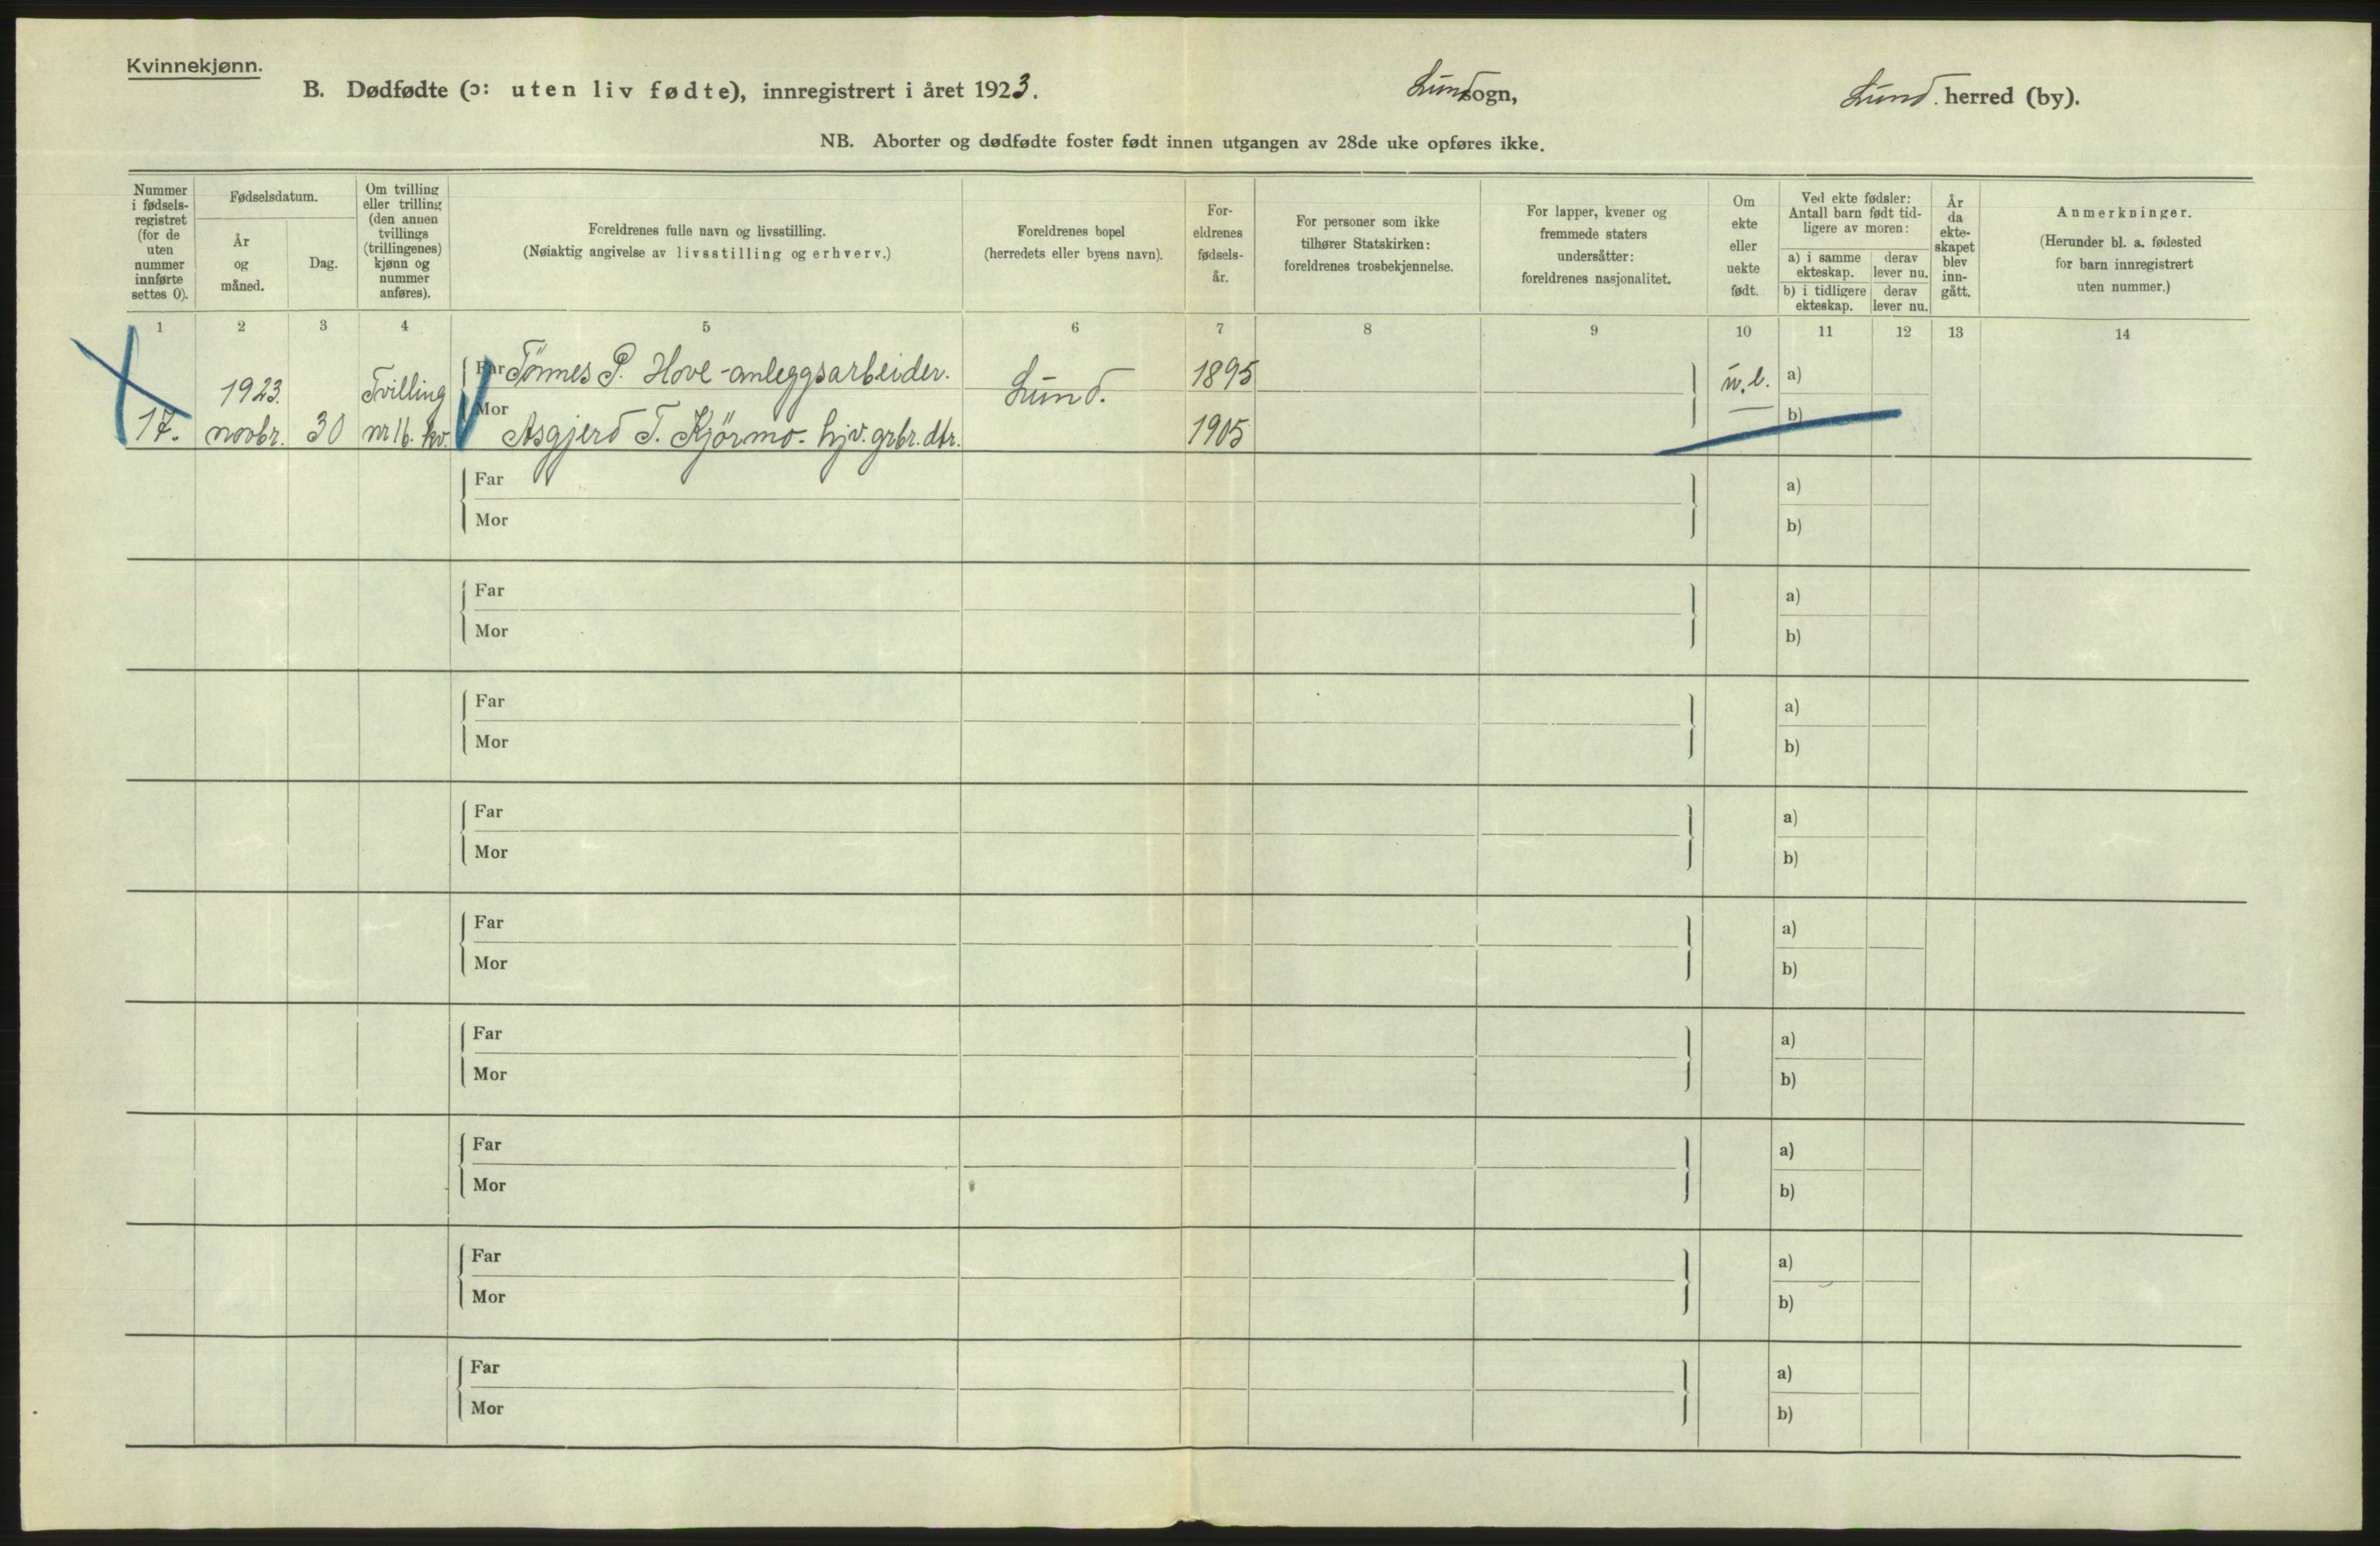 Kvinnekjønn.
B. Dødfødte (ɔ: uten liv fødte), innregistrert i året 1923.
Lund sogn,
Lund. herred (by).
NB. Aborter og dødfødte foster født innen utgangen av 28de uke opføres ikke.
Nummer
i fødsels-
registret
(for de
uten
nummer
innførte
settes 0).
Fødselsdatum.
År
og
måned.
Dag.
Om tvilling
eller trilling
(den annen
tvillings
(trillingenes)
kjønn og
nummer
anføres).
Foreldrenes fulle navn og livsstilling.
(Nøiaktig angivelse av livsstilling og erhverv.)
Foreldrenes bopel
(herredets eller byens navn).
For-
eldrenes
fødsels-
år.
For personer som ikke
tilhører Statskirken:
foreldrenes trosbekjennelse.
For lapper, kvener og
fremmede staters
undersåtter:
foreldrenes nasjonalitet.
Om
ekte
eller
uekte
født.
Ved ekte fødsler:
Antall barn født tid-
ligere av moren:
a) i samme
ekteskap.
derav
lever nu.
b) i tidligere
ekteskap.
derav
lever nu.
År
da
ekte-
skapet
blev
inn-
gått.
Anmerkninger.
(Herunder bl. a. fødested
for barn innregistrert
uten nummer.)
1 2 3 4 5 6 7 8 9 10 11 12 13 14
Far Tönnes P. Hove - anleggsarbeider. 1895
1923. Tvilling Lund. u.e. a)
Mor b)
17. novbr. 30 nr 16. kv. Asgjerd T. Kjörmo - hjv. grbr. dtr. 1905
Far a)
Mor b)
Far a)
Mor b)
Far a)
Mor b)
Far a)
Mor b)
Far a)
Mor b)
Far a)
Mor b)
Far a)
Mor b)
Far a)
Mor b)
Far a)
Mor b)